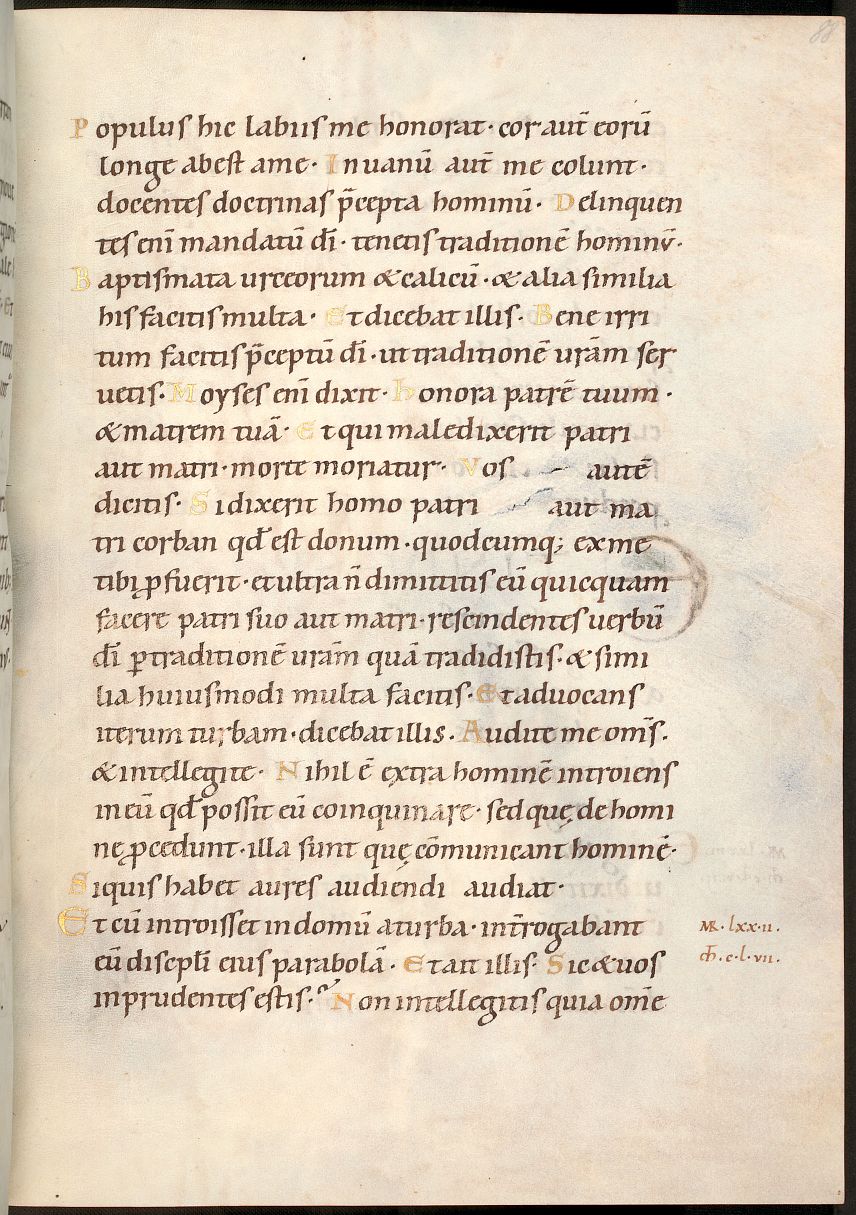 68
Populus hic labiis me honorat· cor aut̄ eorū
longe abest a me· In vanū aut̄ me colunt·
docentes doctrinas p̄cepta hominū· Delinquen
tes eni̅ mandatū dī· tenetis traditionē hominū·
Baptismata urceorum & calicū· & alia similia
his facitis multa· Et dicebat illis· Bene irri
tum facitis p̄ceptū dī· ut traditionē urām ser
uetis· Moyses eni̅ dixit· honora patrē tuum·
& matrem tuā· Et qui maledixerit patri
aut matri· morte moriatur· Vos autē
dicitis· Si dixerit homo patri aut ma
tri corban qđ est donum· quodcumq; ex me
tibi ꝓfuerit· et ultra n̄ dimittitis eū quicquam
facere patri suo aut matri· rescindentes uerbū
dī ꝑ traditionē urām quā tradidistis· & simi
lia huiusmodi multa facitis· Et aduocans
iterum turbam· dicebat illis· Audite me om̄s·
& intellegite· Nihil ē extra hominē introiens
in eū qđ possit eū coinquinare· sed quę de homi
ne ꝓcedunt· illa sunt quę cōmunicant hominē·
Siquis habet aures audiendi audiat·
Et cū introisset in domū a turba· int̄rogabant
eū discipli̅ eius parabolā· Et ait illis· Sic & uos
inprudentes estis· Non intellegitis quia om̄e
MR· lxx·ii·
m̅· c·l·vii·